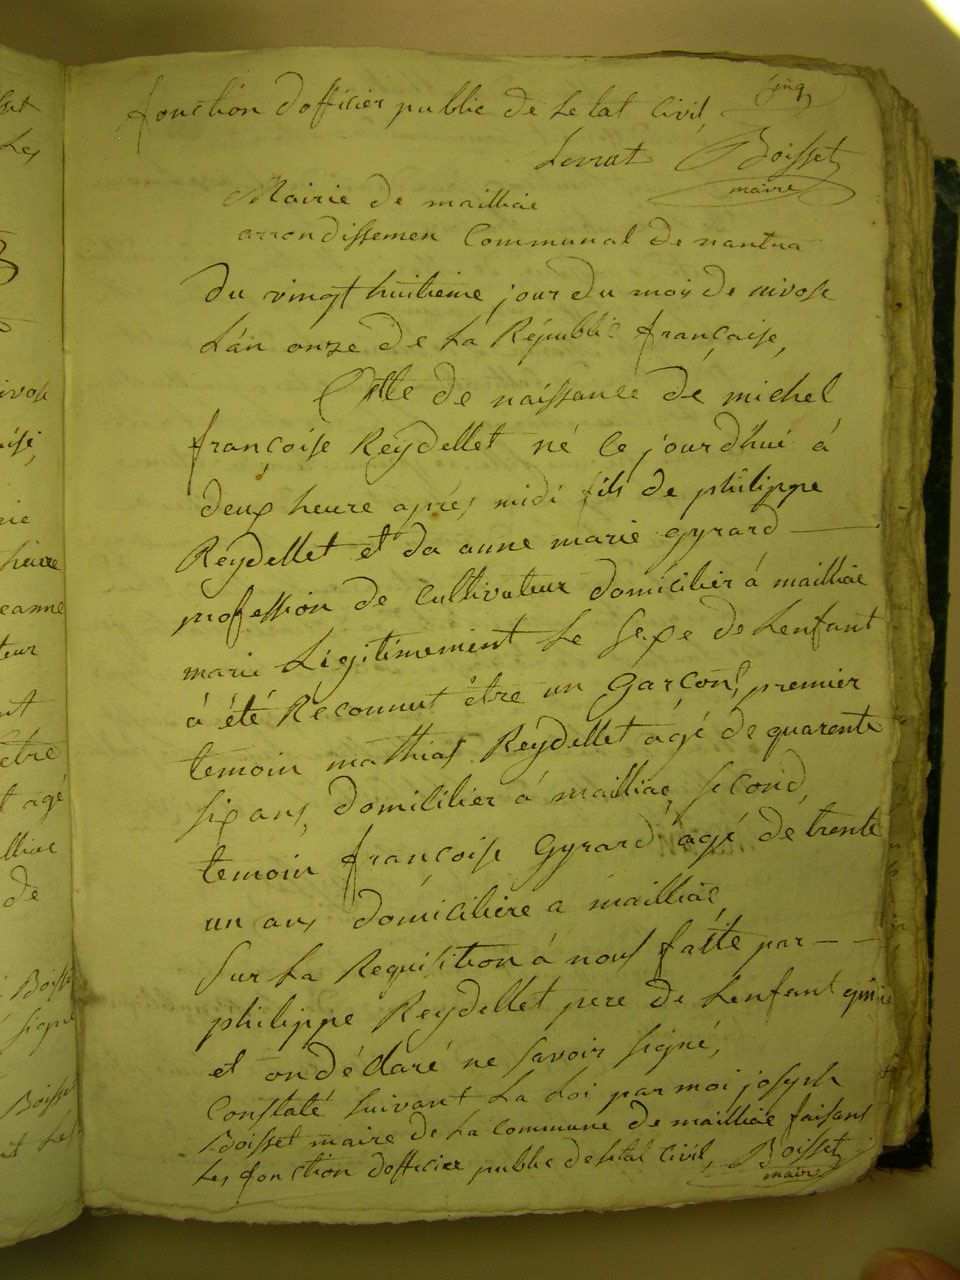 fonction dofficier public de Letat Civil,
cinq
Levrat Boisset
maire
Mairie de mailliac
arrondissemen Communal de nantua
du vingt huitieme jour du mois de nivose
Lán onze de La République française,
Acte de naissance de michel
françoise Reydellet né ce jourdhui à
deux heure aprés midi fils de philippe
Reydellet et da anne marie gyrard
profession de Cultivateur domicilier à mailliac
marié Légitimement Le Sexe de Lenfant
à été Reconnut être un Garçon, premier
temoin mathias Reydellet agé de quarente
Six ans, domicilier à mailliac, Second,
temoin françoise Gyrard agé de trente
un ans domicilière a mailliac,
Sur La Requisition à nous faite par
philippe Reydellet pere de Lenfant
et on déclaré ne Savoir Signé,
Constaté Suivant La Loi par moi joseph
Boisset maire de La Commune de mailliac faisant
Les fonction dofficier public de letat Civil, Boisset
maire
ivose
heure
jeanne
teur
être
t agé
lliac
de
Boisse
Signé
Boisse